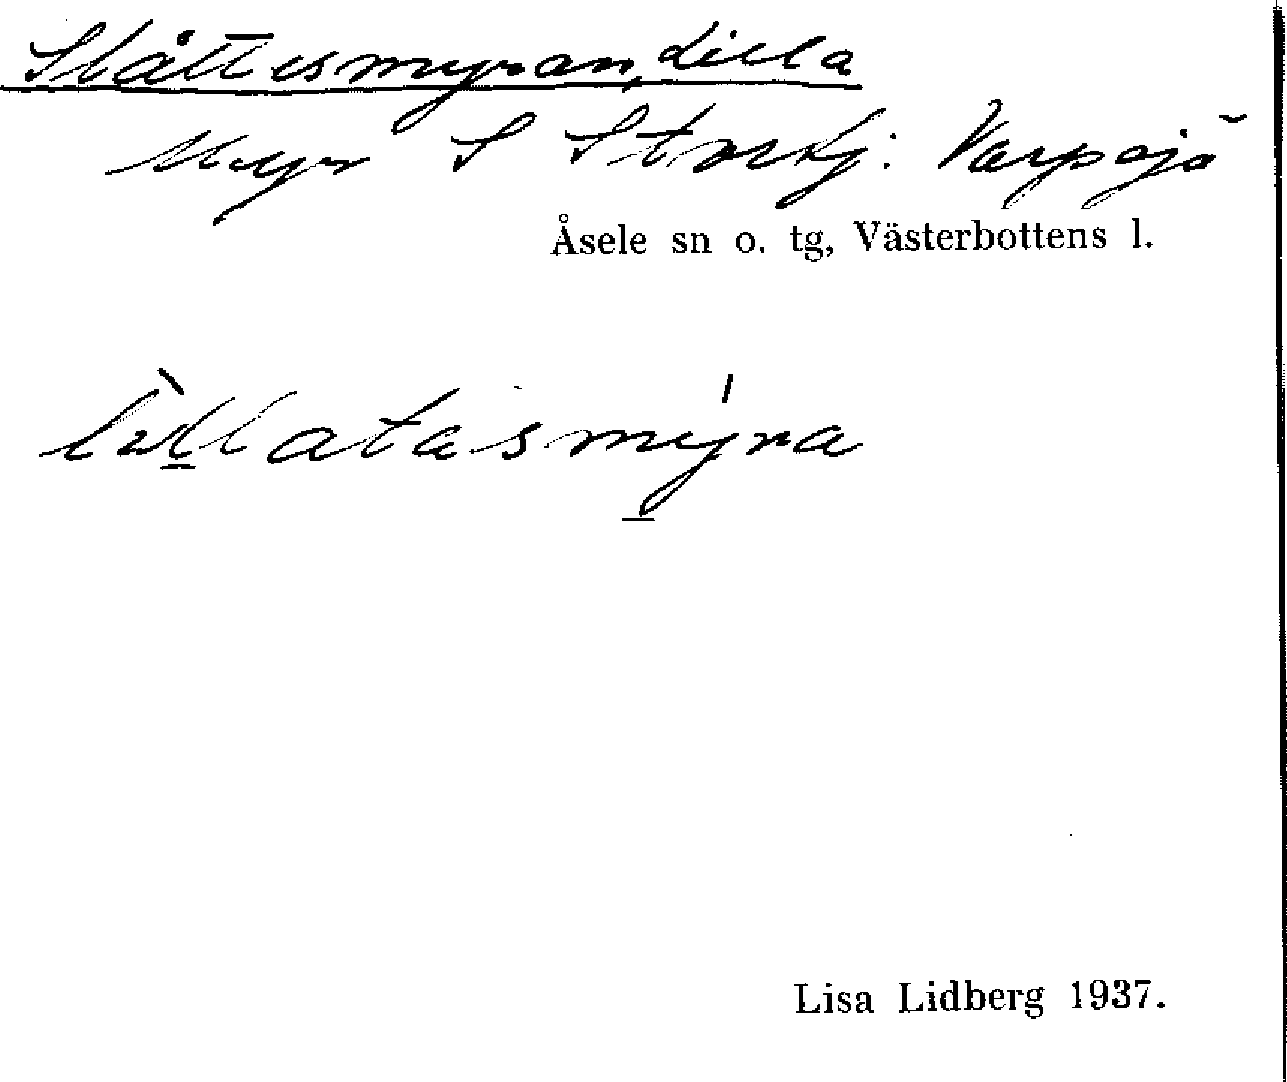 Slåttesmyran, Lilla
Myr S Storbj: Varpsjö
Åsele sn o. tg, Västerbottens l.
Lisa Lidberg 1937.